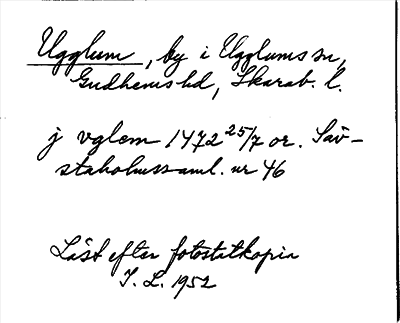 Ugglum, by i Ugglums sn,
Gudhems hd, Skarab. l.
j vglem 1472 25/7 or. Säv-
staholmssaml. nr 46
Läst efter fotostatkopia
I. L. 1952